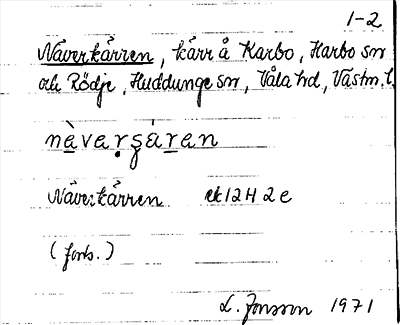 1-2
Näverkärren, kärr å Karbo, Harbo sn
och Rödje, Huddunge sn, Våla hd, Västm. l.
nàvarṣáren
Näverkärren ek 12 H 2 e
(forts.)
L. Jonsson 1971